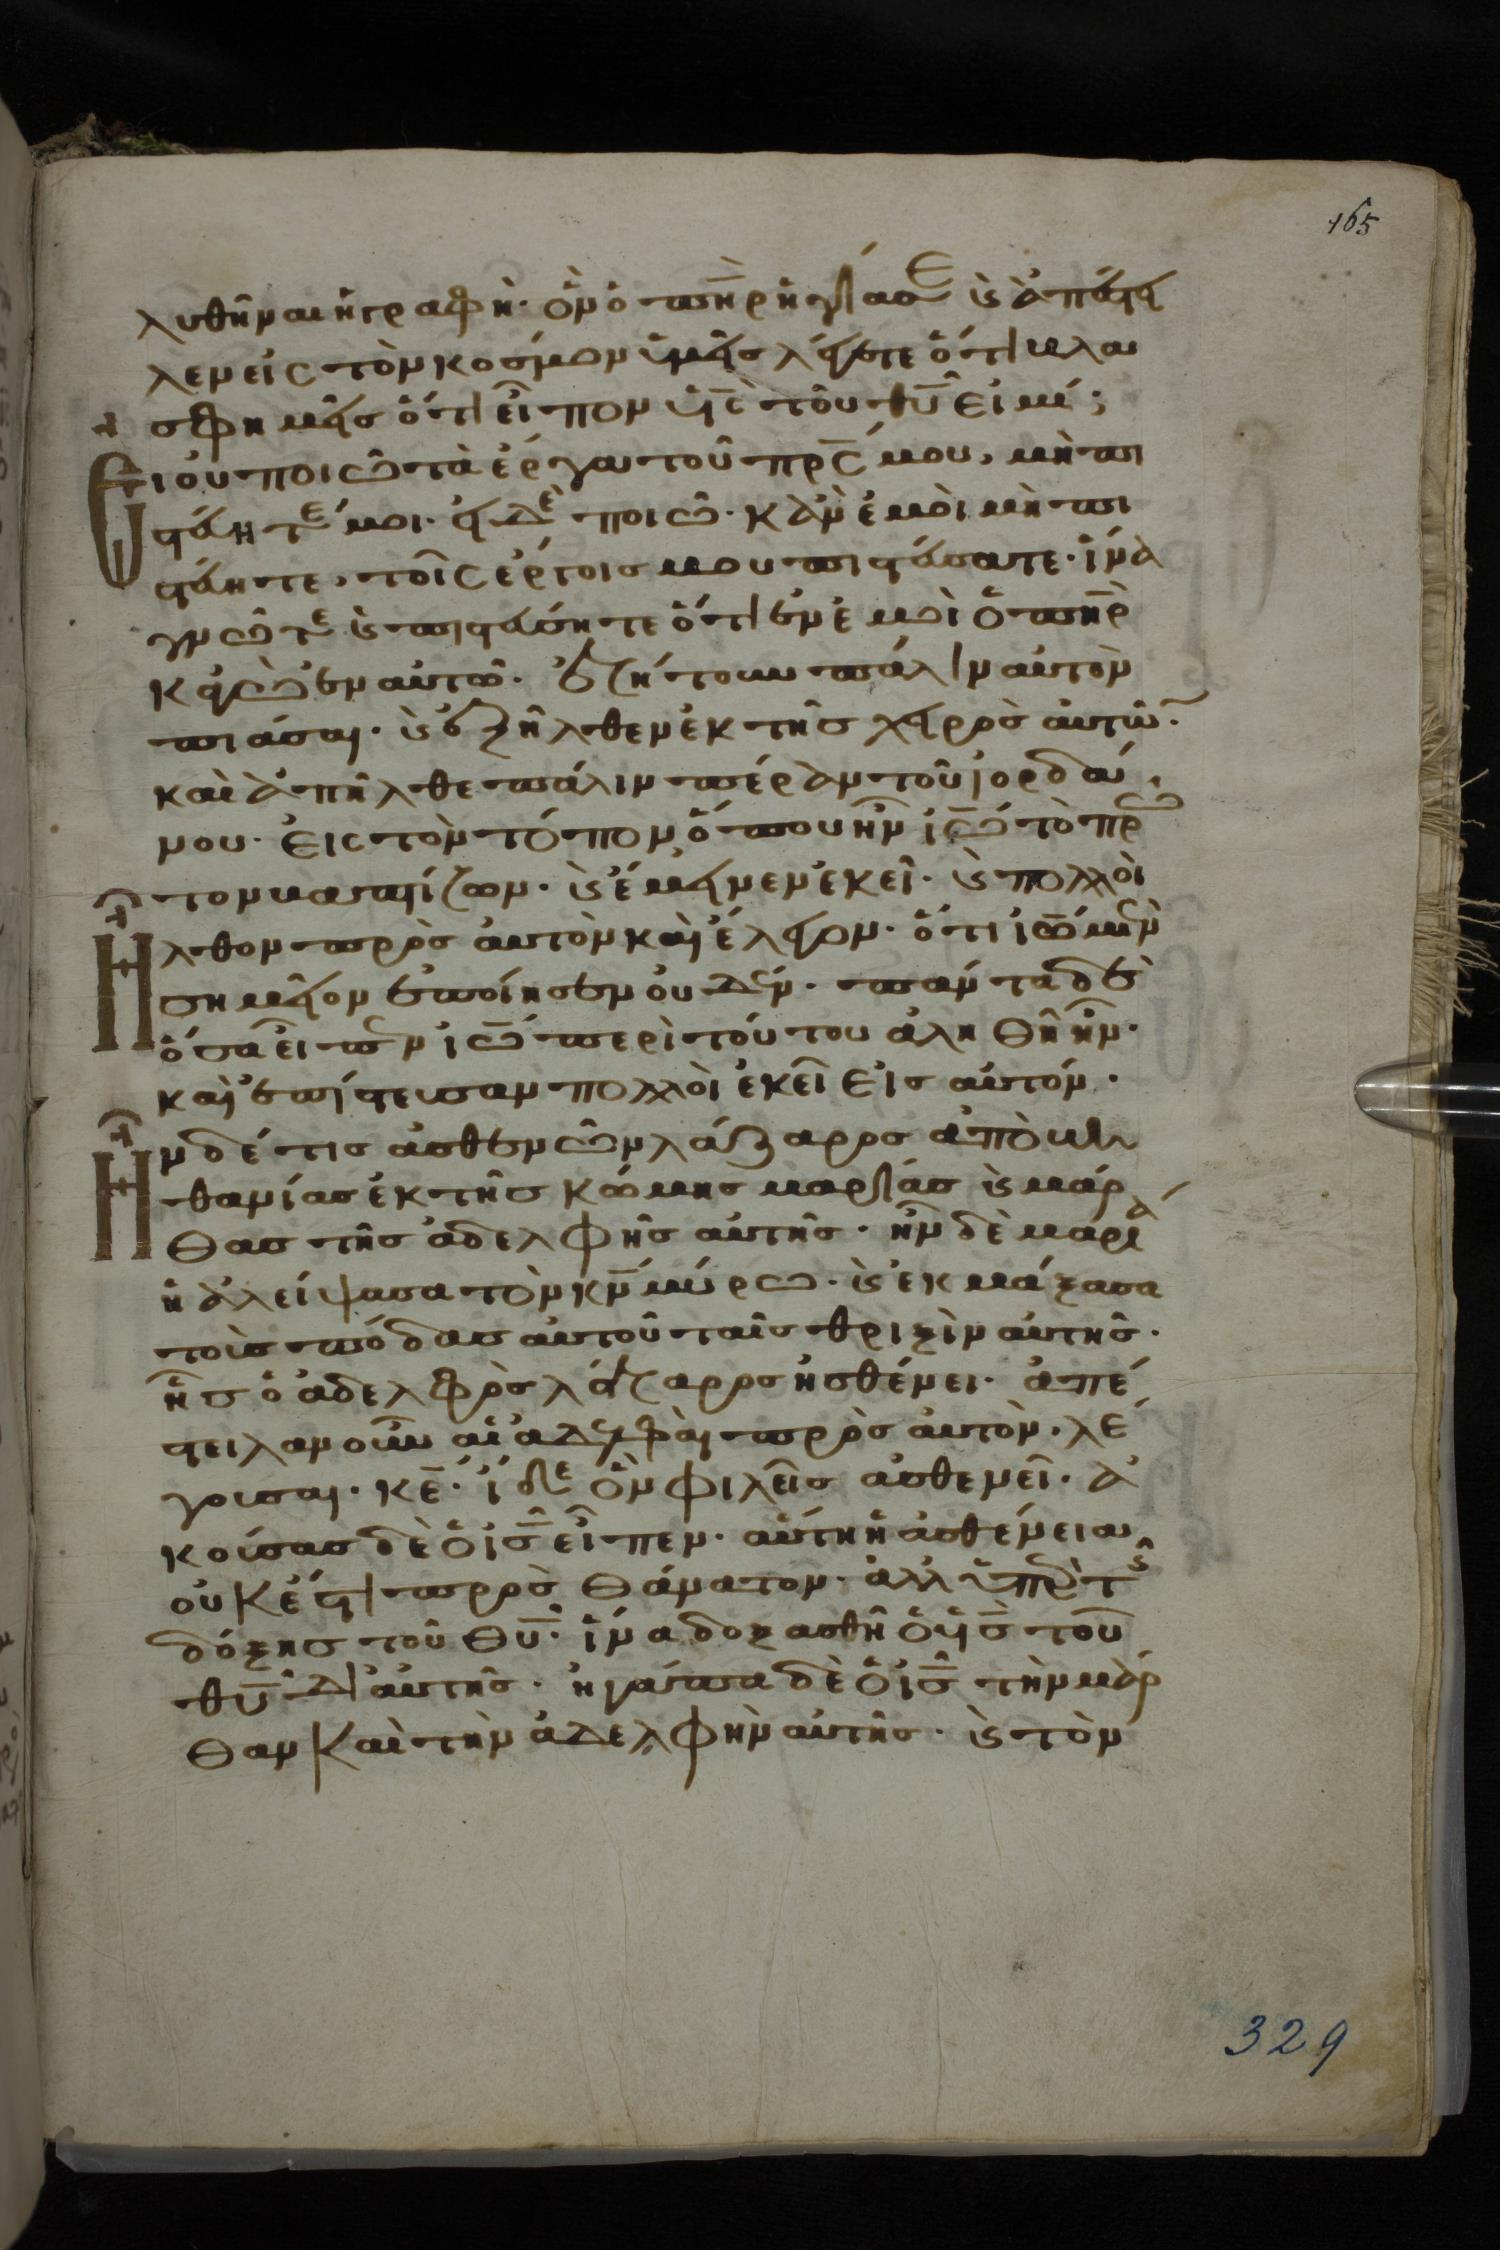 165
λυθῆναι ἡ γραφή· ὃν ὁ πὴρ ἡγίασε κ ἀπέστει
λεν εἰς τὸν κοσμον ὑμεῖς λέγετε ὅτι βλα
σφημεῖς ὅτι εἶπον υἱς τοῦ θυ εἰμί;
Εἰ οὐ ποιῶ τὰ ἔργα τοῦ πρς μου, μὴ πι
στέυητέ μοι· εἰ δὲ ποιῶ· κἀν ἐμοὶ μὴ πι
στέυητε, τοῖς ἔργοις μου πιστέυσατε· ἵνα
γνῶτε κ πιστέυσητε ὅτι ἐν ἐμοὶ ὁ πὴρ
κἀγὼ ἐν αὐτῶ· ἐζήτουν πάλιν αὐτὸν
πιάσαι· κ ἐξῆλθεν ἐκ τῆς χειρὸς αὐτῶν·
καὶ ἀπῆλθε πάλιν πέραν τοῦ ἰορδά
νου· εἰς τὸν τόπον ὅπου ἦν ἰω τὸ πρῶ
τον βαπτίζων· κ ἔμεινεν ἐκεῖ· κ πολλοὶ
Ηλθον πρὸς αὐτὸν καὶ ἔλεγον· ὅτι ἰω μὲν
σημεῖον ἐποίησεν οὐδέν· πάντα δὲ
ὅσα εἶπεν ἰω περὶ τούτου ἀληθῆ ἦν·
καὶ ἐπίστευσαν πολλοὶ ἐκεῖ εἰς αὐτόν·
Ην δέ τις ἀσθενῶν λάζαρος ἀπὸ βη
θανίας ἐκ τῆς κώμης μαρίας κ μάρ
θας τῆς ἀδελφῆς αὐτῆς· ἦν δὲ μαρία
ἡ ἀλείψασα τὸν κν μύρω· κ ἐκμάξασα
τοὺς πόδας αὐτοῦ ταῖς θριξὶν αὐτῆς·
ἧς ὁ ἀδελφὸς λάζαρος ἠσθένει· ἀπέ
στειλαν οὖν αἱ ἀδελφαὶ πρὸς αὐτὸν, λέ
γουσαι· κε· ἴδε ὃν φιλεῖς ἀσθενεῖ· ἀ
κούσας δὲ ὁ ις εἶπεν· αὕτη ἡ ἀσθένεια
οὐκ ἔστι πρὸς θάνατον· ἀλλ ὑπὲρ τῆς
δόξης τοῦ θυ· ἵνα δοξασθῆ ὁ υἱς τοῦ
θυ δι αὐτῆς· ἠγάπα δὲ ὁ ις τὴν μάρ
θαν καὶ τὴν ἀδελφὴν αὐτῆς· κ τὸν
329